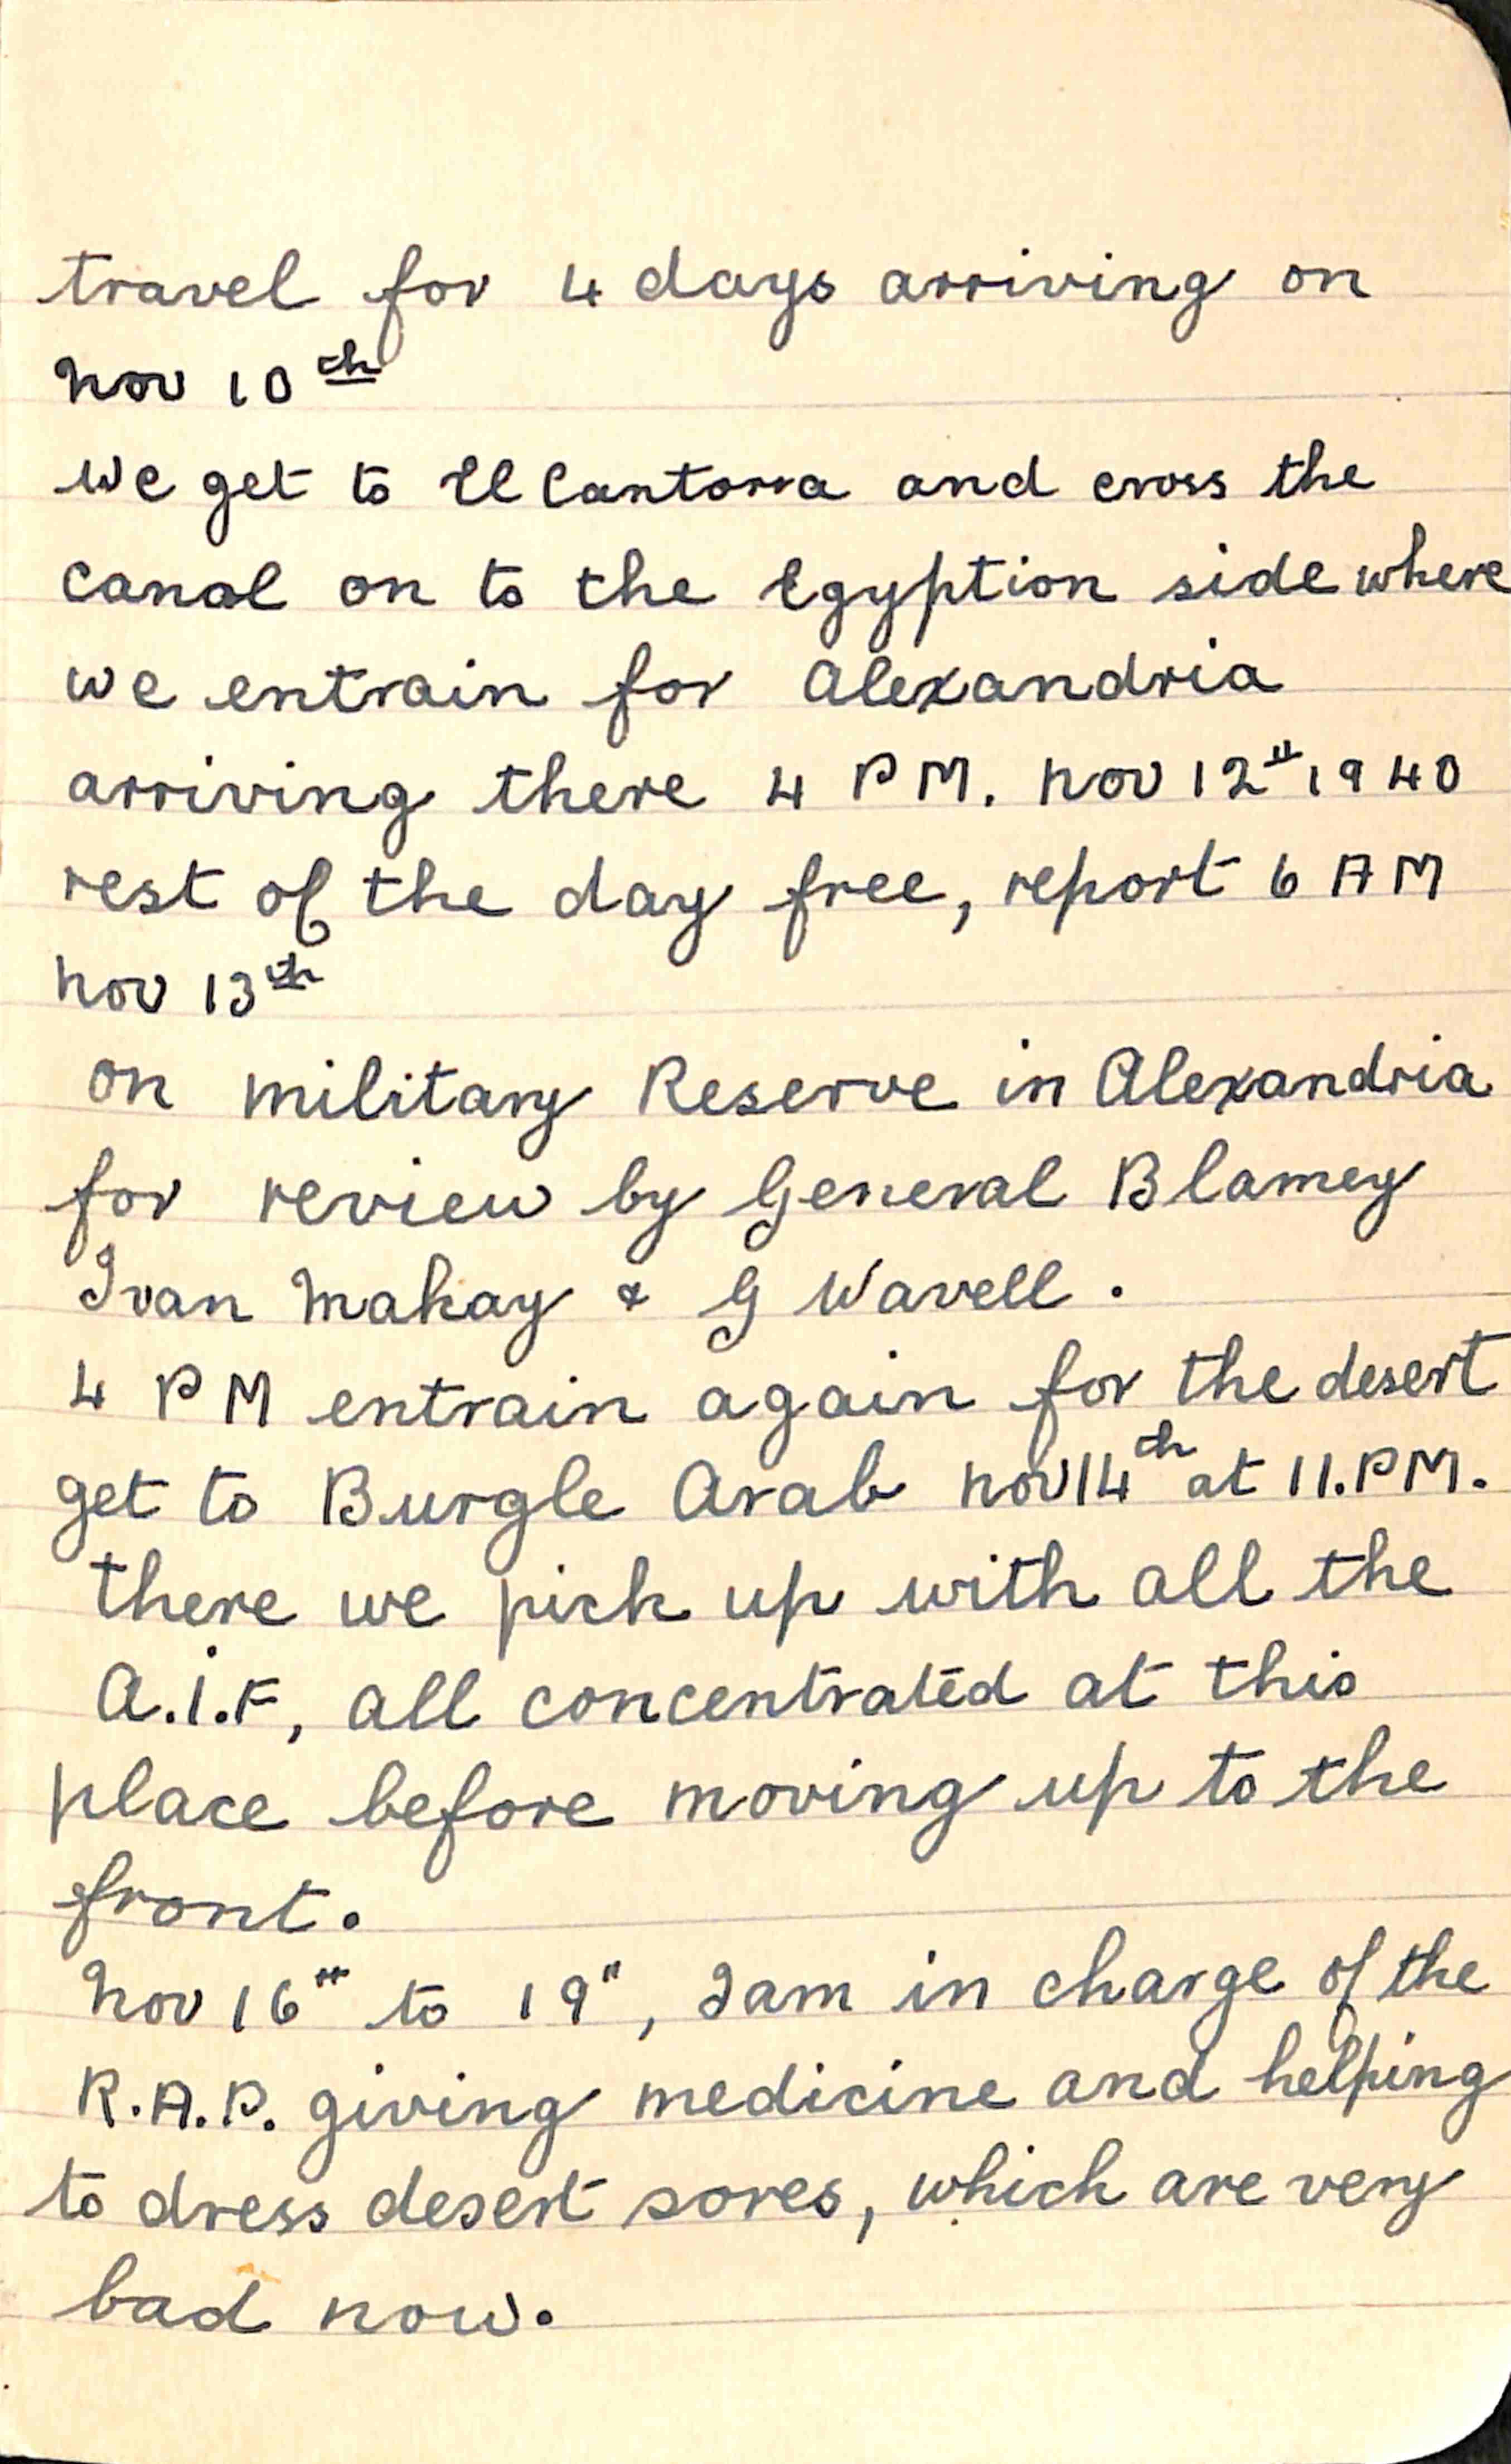 travel for 4 days arriving on
Nov 10th
we get to El Cantorra and cross the
canal on to the Egyption side where
we entrain for Alexandria
arriving there 4 PM. Nov 12" 1940
rest of the day free, report 6 AM
Nov 13th
on military Reserve in Alexandria
for review by General Blamey
Ivan Makay & G Wavell.
4 PM entrain again for the desert
get to Burgle Arab Nov 14th at 11.PM.
there we pick up with all the
A.I.F, all concentrated at this
place before moving up to the
front.
Nov 16" to 19", I am in charge of the
R.A.P. giving medicine and helping
to dress desert sores, which are very
bad now.